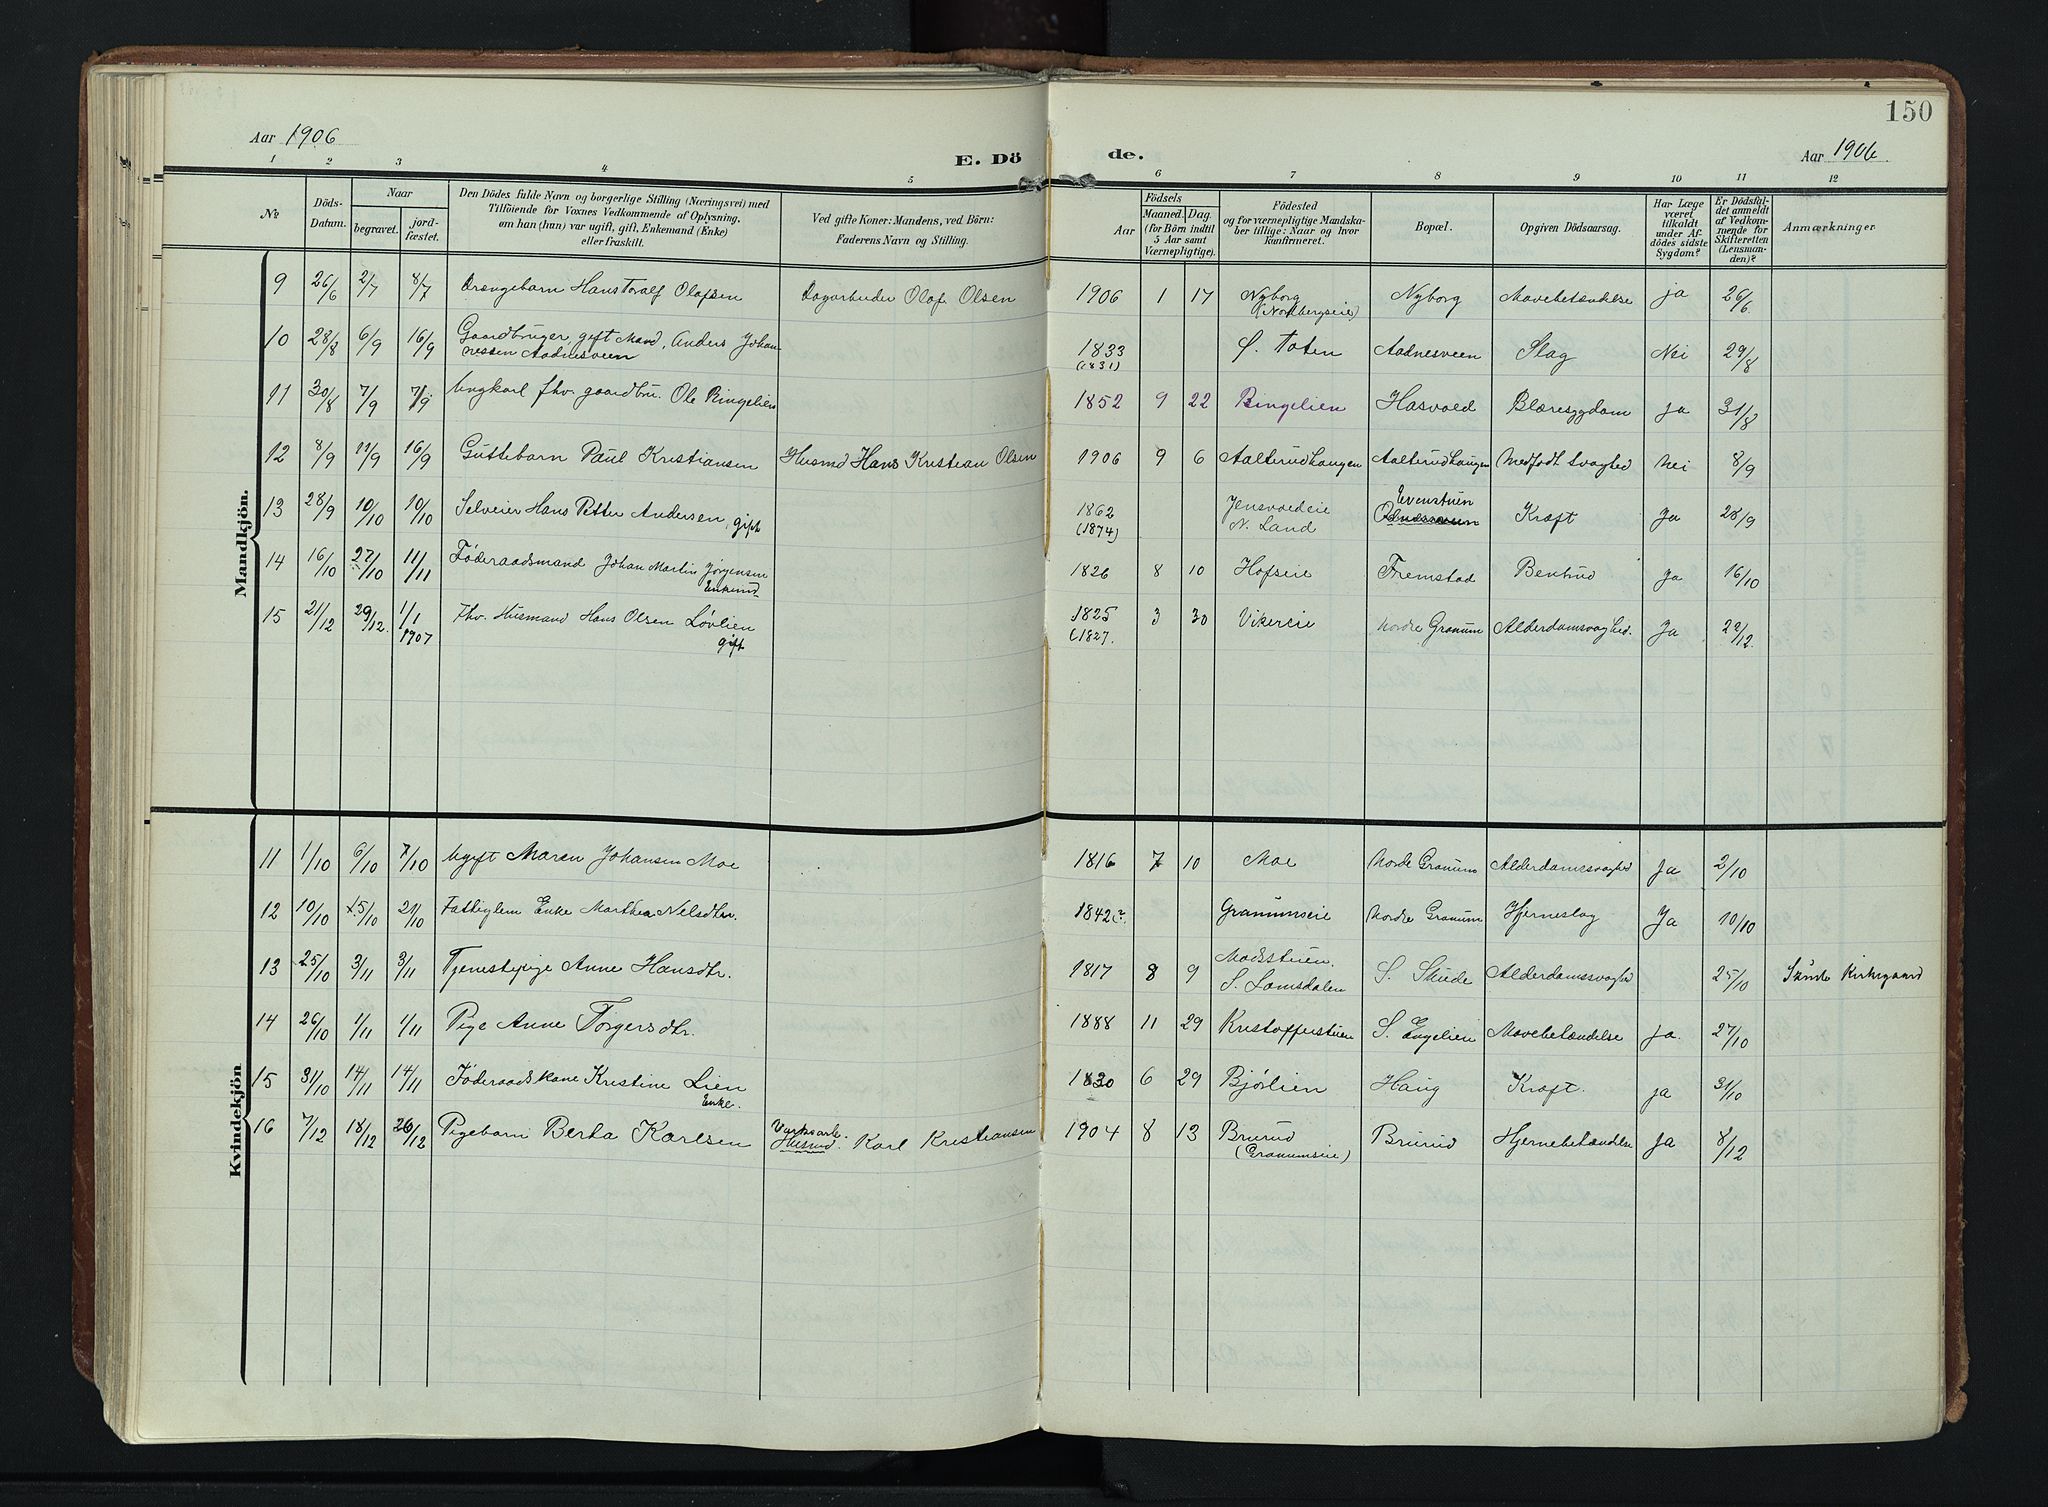 150
Aar 1906
E. Dö de.
Aar 1906.
1 2 3 4 5 6 7 8 9 10 11 12
№
Döds-Datum.
Naar
begravet.
jord-fæstet.
Den Dödes fulde Navn og borgerlige Stilling (Næringsvei) med
Tilföiende for Voxnes Vedkommende af Oplysning,
om han (hun) var ugift, gift, Enkemand (Enke)
eller fraskilt.
Ved gifte Koner: Mandens, ved Börn:
Faderens Navn og Stilling.
Födsels
Aar
Maaned. Dag.
(for Börn indtil
5 Aar samt
Værnepligtige).
Födested
og for værnepligtige Mandska-
ber tillige: Naar og hvor
konfirmeret.
Bopæl.
Opgiven Dödsaarsag.
Har Læge
været
tilkaldt
under Af-
dödes sidste
Sygdom?
Er Dödsfal-
det anmeldt
af Vedkom-
mende for
Skifteretten
(Lensman-
den)?
Anmærkninger
Mandkjön.
9 26/6 2/7 8/7 Drengebarn Hans Toralf Olafsen Dagarbeider Olaf Olsen 1906 1 17 Nyborg (Nordbergseie) Nyborg Mavebetændelse ja 26/6.
10 28/8 6/9 16/9 Gaardbruger, gift Mand, Anders Johan-
nessen Aadnesveen 1833 (1831) Ø. Toten Aadnesveen Slag Nei 29/8
11 30/8 7/9 7/9 Ungkarl fhv. gaardbru. Ole Ringelien 1852 9 22 Ringelien Hasvold Blæresygdom ja 31/8
12 8/9 11/9 16/9 Guttebarn Paul Kristiansen Husmd Hans Kristian Olsen 1906 9 6 Aalterudhaugen Aalterudhaugen Medfödt svaghed Nei 8/9
13 28/9 10/10 10/10 Selveier Hans Petter Andersen, gift 1862 (1874) Jensvoldeie N. Land Evenstuen Kræft Ja 28/9
14 16/10 27/10 11/11 Föderaadsmand Johan Martin Jørgensen
Enkemd 1826 8 10 Hofseie Fremstad Ja 16/10
15 21/12 29/12. 1/1 1907 Fhv. Husmand Hans Olsen Løvlien
gift 1825 (1827. 3 30 Vikereie Nordre Granum Alderdomsvaghed. Ja 22/12.
Kvindekjön
11 1/10 6/10 7/10 Ugift Maren Johansen Moe 1816 7 10 Moe Nordre Granum Alderdomssvaghed Ja 2/10
12 10/10 15/10 21/10 Fattiglem Enke Marthea Nilsdtr. 1842? Granumseie Nordre Granum Hjerneslag Ja 10/10
13 25/10 3/11 3/11 Tjenestepige Anne Hansdtr. 1817 8 9 Madsstuen. S. Lomsdalen S. Skude Alderdomssvaghed 25/10 Kirkegaard
14 26/10 1/11 1/11 Pige Anne Torgersdtr. 1888 11 29 Kristofferstuen S. Engelien Mavebetændelse ja. 27/10
15 31/10 14/11 14/11 Föderaadskone Kristine Lien
Enke. 1830 6 29 Bjørlien Haug Kræft. ja 31/10
16 7/12 18/12 26/12 Pigebarn Berta Karlsen Husmd. Karl Kristiansen 1904 8 13 Brurud (Granumseie) Brurud Hjernebetændelse Ja 8/12